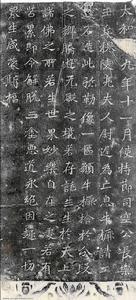 太和十九年十一月使持節司空公長樂
王丘穆陵亮夫人尉遲為亡息牛橛請工鏤
石造此彌勒像一區願牛橛捨於分段
之鄉騰遊无礙之境若存託生生於天上
諸佛之所若生世界妙樂自在之處若有
苦累即令解脫三塗惡道永絕因趣一切
眾生咸蒙斯福